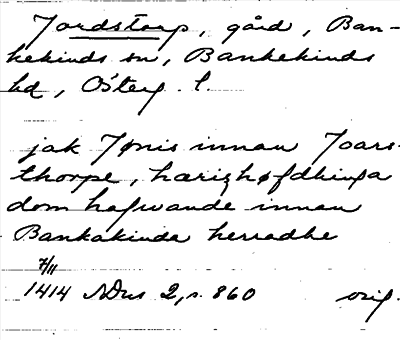 Jordstorp, gård, Ban-
kekinds sn, Bankekinds
hd, Österg. l.
jak Jønis innan Joars-
thorpe, hærizhøfdhinga
dom hafwande innan
Bankakinda herradhe
7/11
1414 NDns 2, s. 860 orig.